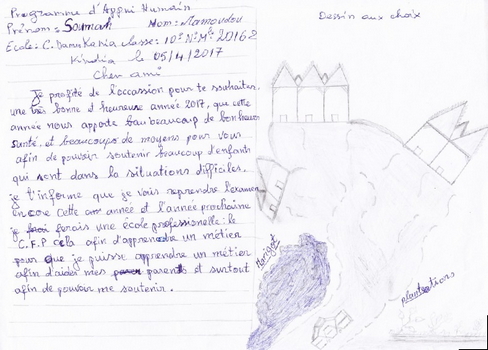 Programme d'Appui Humain
Prénom: Soumah Nom: Mamoudou
Ecole: C. Damakania classe: 10e N: M: 20162
Kindia le 05/4/2017
Cher ami
Je profite de l'occassion pour te souhaiter
une très bonne et heureuse année 2017, que cette
année nous apporte beaucoup de bonheur
Santé, et beaucoups de moyens pour vous
afin de pouvoir soutenir beaucoup d'enfants
qui sont dans la situations difficiles.
je t'informe que je vais reprendre l'examen
encore cette année et l'année prochaine
je ferais une école professionnelle: le
C.F.P cela afin d'apprendre un métier
pour que je puisse apprendre un métier
afin d'aidés mes parents et surtout
afin de pouvoir me soutenir.
Dessin aux choix
Marigot
plantations